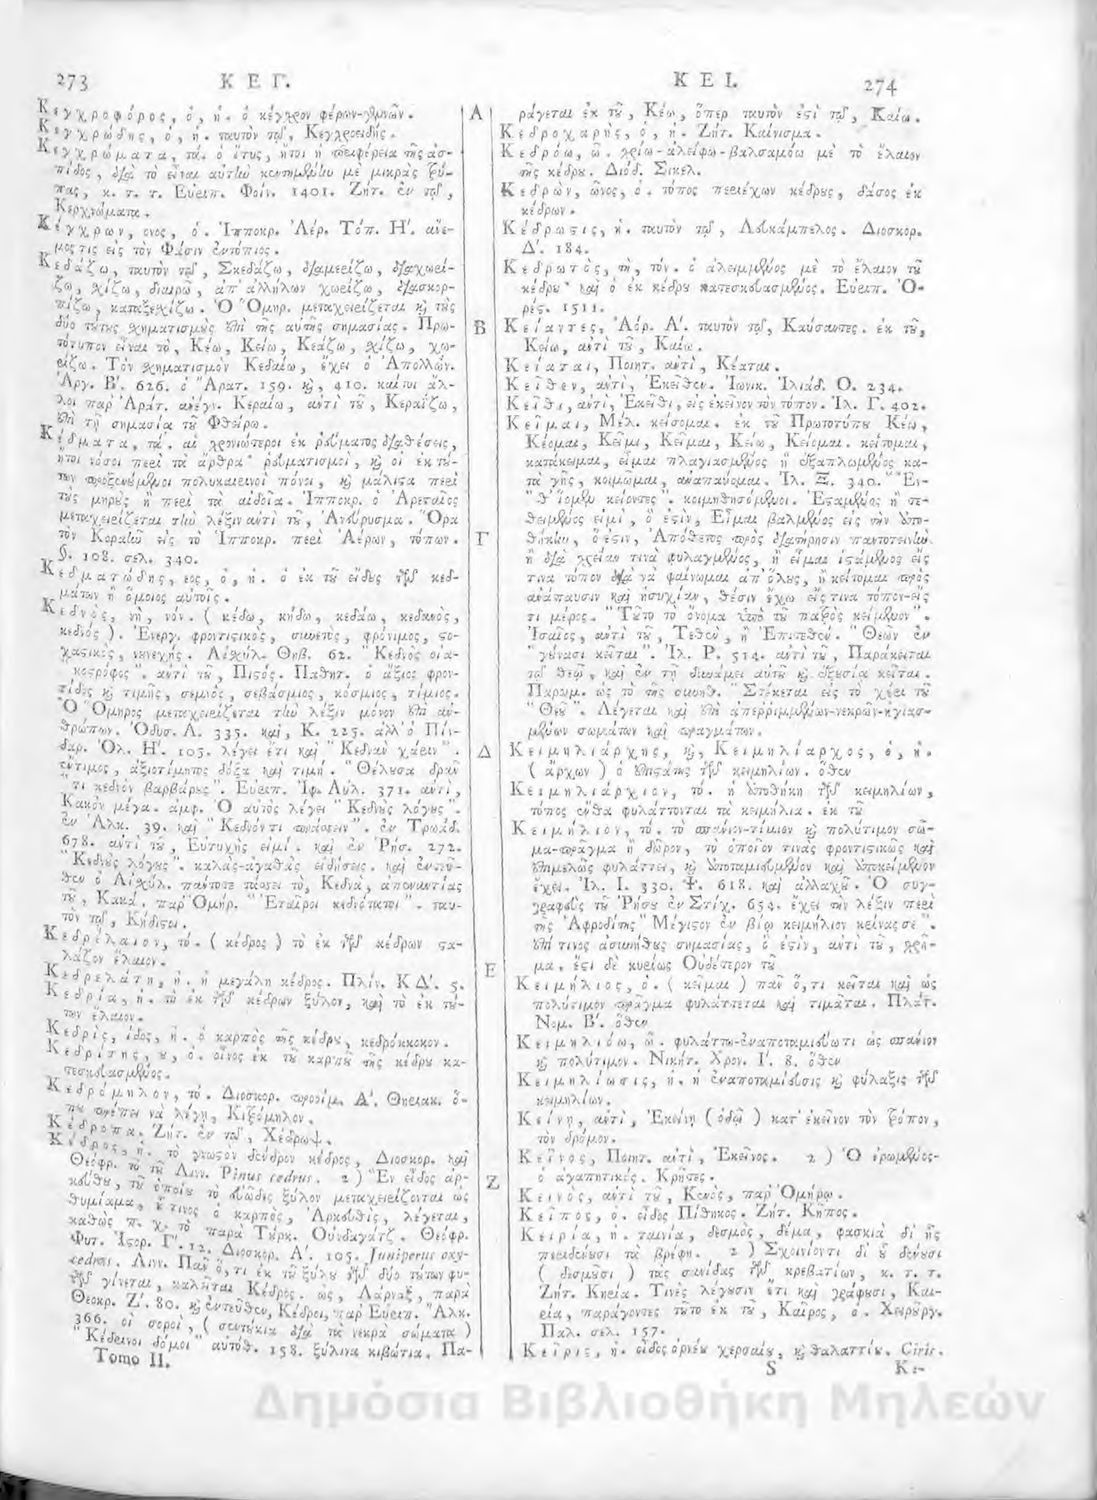 273 ΚΕΓ.
Κεγχροφόρος, ὁ, ἡ. ὁ κέγχρον φέρων-γεννῶν.
Κεγχρώδης, ὁ, ἡ. ταυτὸν τῷ, Κεγχροειδής.
Κεγχρώματα, τά. ὁ ἴτυς, ἤτοι ἡ περιφέρεια τῆς ἀσ-
πίδος, διὰ τὸ εἶναι αὐτὴν κεντημένην μὲ μικρὰς τρύ-
πας, κ. τ. τ. Εὐριπ. Φοίν. 1401. Ζήτ. ἐν τῷ,
Κερχνώματα.
Κέγχρων, ονος, ὁ. Ἱπποκρ. Ἀέρ. Τόπ. Η΄. ἄνε-
μος τις εἰς τὸν Φᾶσιν ἐντόπιος.
Κεδάζω, ταυτὸν τῷ, Σκεδάζω, διαμερίζω, διαχωρί-
ζω, σχίζω, διαιρῶ, ἀπ᾽ ἀλλήλων χωρίζω, διασκορ-
πίζω, καταξεσχίζω. Ὁ Ὅμηρ. μεταχειρίζεται καὶ τοὺς
δύο τούτους σχηματισμοὺς ἐπὶ τῆς αὐτῆς σημασίας. Πρω-
τότυπον εἶναι τὸ, Κέω, Κείω, Κεάζω, σχίζω, χω-
ρίζω. Τὸν σχηματισμὸν Κεδαίω, ἔχει ὁ Ἀπολλών.
Ἀργ. Β΄. 626. ὁ Ἄρατ. 159. καὶ, 410. καίτοι ἄλ-
λοι παρ᾽ Ἀράτ. ἀνέγν. Κεραίω, ἀντὶ τοῦ, Κεραΐζω,
ἐπὶ τῇ σημασίᾳ τοῦ Φθείρω.
Κέδματα, τά. αἱ χρονιώτεροι ἐκ ῥεύματος διαθέσεις,
ἤτοι νόσοι περὶ τὰ ἄρθρα· ῥευματισμοὶ, καὶ οἱ ἐκ τού-
των προξενούμενοι πολυκαιρινοὶ πόνοι, καὶ μάλιστα περὶ
τοὺς μηροὺς ἢ περὶ τὰ αἰδοῖα. Ἱπποκρ. ὁ Ἀρεταῖος
μεταχειρίζεται τὴν λέξιν ἀντὶ τοῦ, Ἀνεύρυσμα. Ὅρα
τὸν Κοραῆν εἰς τὸ Ἱπποκρ. περὶ Ἀέρων, τόπων.
§. 108. σελ. 340.
Κεδματώδης, εος, ὁ, ἡ. ὁ ἐκ τοῦ εἴδους τῶν κεδ-
μάτων ἢ ὅμοιος αὐτοῖς.
Κεδνὸς, νὴ, νόν. ( κέδω, κήδω, κεδάω, κεδανὸς,
κεδνὸς ). Ἐνεργ. φροντιστικὸς, συνετὸς, φρόνιμος, στο-
χαστικὸς, νενεχής. Αἰσχύλ. Θηβ. 62. " Κεδνὸς οἰα-
κοστρόφος ". ἀντὶ τοῦ, Πιστός. Παθητ. ὁ ἄξιος φρον-
τίδος καὶ τιμῆς, σεμνὸς, σεβάσμιος, κόσμιος, τίμιος.
Ὁ Ὅμηρος μεταχειρίζεται τὴν λέξιν μόνον ἐπὶ ἀν-
θρώπων. Ὀδυσ. Α. 335. καὶ, Κ. 225. ἀλλ᾽ ὁ Πίν-
δαρ. Ὀλ. Η΄. 105. λέγει ἔτι καὶ " Κεδνὰν χάριν ".
ἔντιμος, ἀξιοτίμητος δόξα καὶ τιμή. " Θέλουσα δρᾶν
" τι κεδνὸν βαρβάρους ". Εὐριπ. Ἰφ. Αὐλ. 371. ἀντὶ,
Κακὸν μέγα. ἀμφ. Ὁ αὐτὸς λέγει " Κεδνοὺς λόγους ".
ἐν Ἀλκ. 39. καὶ " Κεδνόν τι πράσσειν ". ἐν Τρωάδ.
678. ἀντὶ τοῦ, Εὐτυχὴς εἰμί. καὶ ἐν Ῥήσ. 272.
" Κεδνοὺς λόγους ". καλὰς-ἀγαθὰς εἰδήσεις. καὶ ἐντεῦ-
θεν ὁ Αἰσχύλ. πάντοτε τάσσει τὸ, Κεδνὰ, ἀπεναντίας
τοῦ, Κακά. παρ᾽ Ὁμήρ. " Ἑταῖροι κεδνότατοι ". ταυ-
τὸν τῷ, Κήδιστοι.
Κεδρέλαιον, τό. ( κέδρος ) τὸ ἐκ τῶν κέδρων στα-
λάζον ἔλαιον.
Κεδρελάτη, ἡ. ἡ μεγάλη κέδρος. Πλίν. ΚΔ΄. 5.
Κεδρία, ἡ. τὸ ἐκ τῶν κέδρων ξύλον, καὶ τὸ ἐκ τού-
των ἔλαιον.
Κεδρὶς, ίδος, ἡ. ὁ καρπὸς τῆς κέδρου, κεδρόκκοκον.
Κεδρίτης, ου, ὁ. οἶνος ἐκ τοῦ καρποῦ τῆς κέδρου κα-
τεσκευασμένος.
Κεδρόμηλον, τό. Διοσκορ. προοίμ. Α΄. Θηριακ. ὅ-
που πρέπει νὰ λέγῃ, Κιτρόμηλον.
Κέδροπα. Ζήτ. ἐν τῷ, Χέδρωψ.
Κέδρος, ἡ. τὸ γνωστὸν δένδρον κέδρος, Διοσκορ. καὶ
Θεόφρ. τὸ τοῦ Λινν. Pinus cedrus. 2 ) Ἓν εἶδος ἀρ-
κεύθου, τοῦ ὁποίου τὸ εὐῶδες ξύλον μεταχειρίζονται ὡς
θυμίαμα, οὗ τινος ὁ καρπὸς, Ἀρκευθὶς, λέγεται,
καθὼς π. χ. τὸ παρὰ Τούρκ. Οὐνδαγάτζ. Θεόφρ.
Φυτ. Ἱστορ. Γ΄. 12. Διοσκορ. Α΄. 105. Juniperus oxy-
cedrus. Λινν. Πᾶν ὅ,τι ἐκ τοῦ ξύλου τῶν δύο τούτων φυ-
τῶν γίνεται, καλεῖται Κέδρος. ὡς, Λάρναξ, παρὰ
Θεοκρ. Ζ΄. 80. καὶ ἐντεῦθεν, Κέδροι, παρ᾽ Εὐριπ. Ἀλκ.
366. οἱ σοροὶ, ( σεντούκια διὰ τὰ νεκρὰ σώματα )
" Κέδρινοι δόμοι " αὐτόθ. 158. ξύλινα κιβώτια. Πα-
Tomo II.
Α
Β
Γ
Δ
Ε
Ζ
ΚΕΙ. 274
ράγεται ἐκ τοῦ, Κέω, ὅπερ ταυτὸν ἐστὶ τῷ, Καίω.
Κεδροχαρὴς, ὁ, ἡ. Ζήτ. Καίνισμα.
Κεδρόω, ῶ. χρίω-ἀλείφω-βαλσαμόω μὲ τὸ ἔλαιον
τῆς κέδρου. Διόδ. Σικελ.
Κεδρὼν, ῶνος, ὁ. τόπος περιέχων κέδρους, δάσος ἐκ
κέδρων.
Κέδρωσις, ἡ. ταυτὸν τῷ, Λευκάμπελος. Διοσκορ.
Δ΄. 184.
Κεδρωτὸς, τὴ, τόν. ὁ ἀλειμμένος μὲ τὸ ἔλαιον τοῦ
κέδρου· καὶ ὁ ἐκ κέδρου κατεσκευασμένος. Εὐριπ. Ὀ-
ρές. 1511.
Κείαντες, Ἀόρ. Α΄. ταυτὸν τῷ, Καύσαντες. ἐκ τοῦ,
Κείω, ἀντὶ τοῦ, Καίω.
Κείαται, Ποιητ. ἀντὶ, Κέαται.
Κεῖθεν, ἀντὶ, Ἐκεῖθεν. Ἰωνικ. Ἰλιάδ. Ο. 234.
Κεῖθι, ἀντὶ, Ἐκεῖθι, εἰς ἐκεῖνον τὸν τόπον. Ἰλ. Γ. 402.
Κεῖμαι, Μέλ. κείσομαι. ἐκ τοῦ Πρωτοτύπου Κέω,
Κέομαι, Κεῖμι, Κεῖμαι, Κείω, Κείομαι. κείτομαι,
κατάκειμαι, εἶμαι πλαγιασμένος ἢ ἐξαπλωμένος κα-
τὰ γῆς, κοιμῶμαι, ἀναπαύομαι. Ἰλ. Ξ. 340. " Ἔν-
" θ᾽ ἴομεν κείοντες ". κοιμηθησόμενοι. Ἐσταμένος ἢ τε-
θειμένος εἰμὶ, ὅ ἐστιν, Εἶμαι βαλμένος εἰς τὴν ὑπο-
θήκην, ὅ ἐστιν, Ἀπόθετος πρὸς διατήρησιν παντοτεινὴν
ἢ διὰ χρείαν τινὰ φυλαγμένος, ἢ εἶμαι ἱστάμενος εἴς
τινα τόπον διὰ νὰ φαίνωμαι ἀπ᾽ ὅλους, ἢ κείτομαι πρὸς
ἀνάπαυσιν καὶ ἡσυχίαν, θέσιν ἔχω εἴς τινα τόπον-εἴς
τι μέρος. " Τοῦτο τὸ ὄνομα ὑπὸ τοῦ πατρὸς κείμενον ".
Ἰσαῖος, ἀντὶ τοῦ, Τεθὲν, ἢ Ἐπιτεθέν. " Θεῶν ἐν
" γούνασι κεῖται ". Ἰλ. Ρ. 514. ἀντὶ τοῦ, Παράκειται
τῷ Θεῷ, καὶ ἐν τῇ δυνάμει αὐτοῦ καὶ ἐξουσίᾳ κεῖται.
Παροιμ. ὡς τὸ τῆς συνηθ. " Στέκεται εἰς τὸ χέρι τοῦ
" Θεοῦ ". Λέγεται καὶ ἐπὶ ἀπερριμμένων-νεκρῶν-ἡγιασ-
μένων σωμάτων καὶ πραγμάτων.
Κειμηλιάρχης, καὶ, Κειμηλίαρχος, ὁ, ἡ.
( ἄρχων ) ὁ ἐπιστάτης τῶν κειμηλίων. ὅθεν
Κειμηλιάρχιον, τό. ἡ ὑποθήκη τῶν κειμηλίων,
τόπος ἔνθα φυλάττονται τὰ κειμήλια. ἐκ τοῦ
Κειμήλιον, τό. τὸ σπάνιον-τίμιον καὶ πολύτιμον σῶ-
μα-πρᾶγμα ἢ δῶρον, τὸ ὁποῖον τινὰς φροντιστικῶς καὶ
ἐπιμελῶς φυλάττει, καὶ ὑποταμιευμένον καὶ ὑποκείμενον
ἔχει. Ἰλ. Ι. 330. Ψ. 618. καὶ ἀλλαχοῦ. Ὁ συγ-
γραφεὺς τοῦ Ῥήσου ἐν Στίχ. 654. ἔχει τὴν λέξιν περὶ
τῆς Ἀφροδίτης " Μέγιστον ἐν βίῳ κειμήλιον κρίνας σε ".
ἐπί τινος ἀσυνήθους σημασίας, ὅ ἐστιν, ἀντὶ τοῦ, χρῆ-
μα. ἔστι δὲ κυρίως Οὐδέτερον τοῦ
Κειμήλιος, ὁ. ( κεῖμαι ) πᾶν ὅ,τι κεῖται καὶ ὡς
πολύτιμον πρᾶγμα φυλάττεται καὶ τιμᾶται. Πλάτ.
Νομ. Β΄. ὅθεν
Κειμηλιόω, ῶ. φυλάττω-ἐναποταμιεύω τι ὡς σπάνιον
καὶ πολύτιμον. Νικήτ. Χρον. Ι΄. 8. ὅθεν
Κειμηλίωσις, ἡ. ἡ ἐναποταμίευσις καὶ φύλαξις τῶν
κειμηλίων.
Κείνῃ, ἀντὶ, Ἐκείνῃ ( ὁδῷ ) κατ᾽ ἐκεῖνον τὸν τρόπον,
τὸν δρόμον.
Κεῖνος, Ποιητ. ἀντὶ, Ἐκεῖνος. 2 ) Ὁ ἐρωμένος-
ὁ ἀγαπητικός. Κρῆτες.
Κεινὸς, ἀντὶ τοῦ, Κενὸς, παρ᾽ Ὁμήρῳ.
Κεῖπος, ὁ. εἶδος Πίθηκος. Ζήτ. Κῆπος.
Κειρία, ἡ. ταινία, δεσμὸς, δέμα, φασκιὰ δι᾽ ἧς
περιδένουσι τὰ βρέφη. 2 ) Σχοινίον τι δι᾽ οὗ δένουσι
( δεσμοῦσι ) τὰς σανίδας τῶν κρεβατίων, κ. τ. τ.
Ζήτ. Κηρία. Τινὲς λέγουσιν ἔτι καὶ γράφουσι, Και-
ρία, παράγοντες τοῦτο ἐκ τοῦ, Καῖρος, ὁ. Χειρουργ.
Παλ. σελ. 157.
Κεῖρις, ἡ. εἶδος ὀρνέου χερσαίου, καὶ θαλαττίου. Ciris.
S Κε-
Δημόσια Βιβλιοθήκη Μηλεών